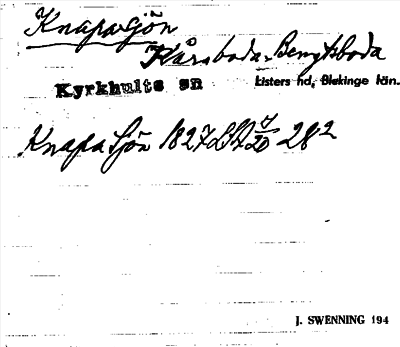 Knapasjön
Kårsboda-Bengtsboda
Kyrkhults sn Listers hd, Blekinge län.
Knapa Sjön 1827 28²
J. SWENNING 194